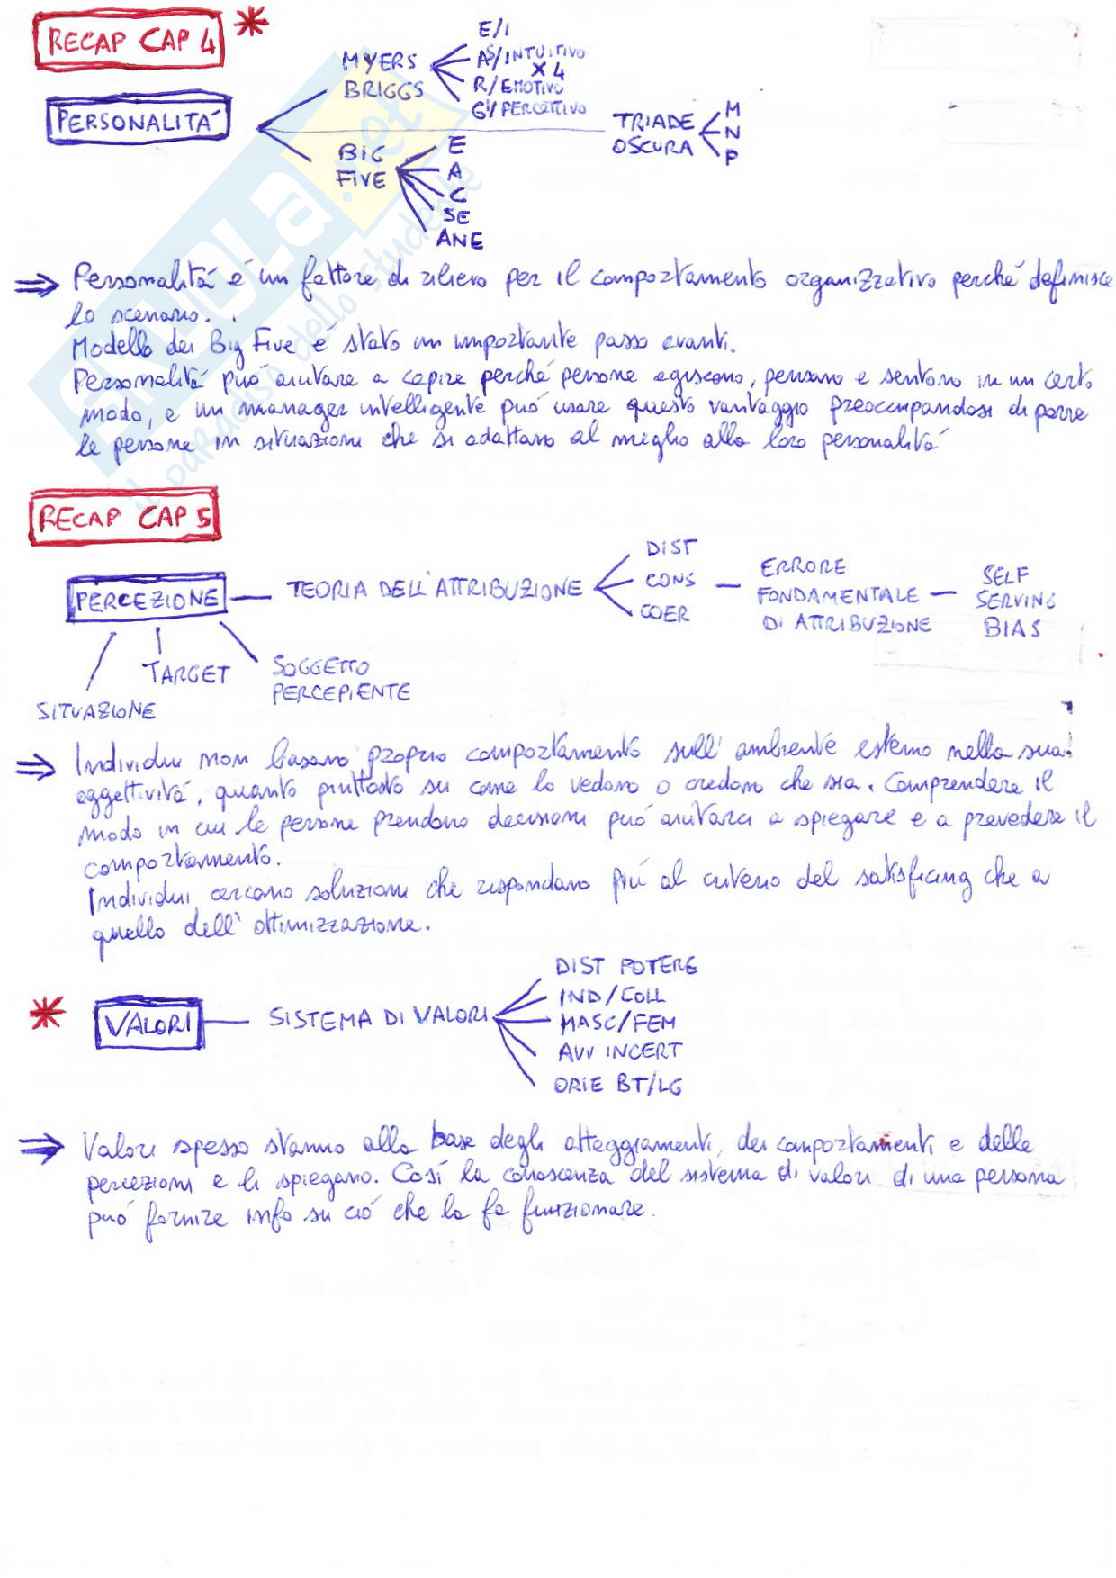 RECAP CAP 4 *
PERSONALITÁ
MYERS
BRIGGS
E/I
S/INTUITIVO
X 4
R/EMOTIVO
G/PERCETTIVO
BIG
FIVE
E
A
C
SE
ANE
TRIADE
OSCURA
M
N
P
⇒ Personalitá é un fattore di rilievo per il comportamento organizzativo perché definisce
lo scenario.
Modello dei Big Five é stato un importante passo avanti.
Personalitá puó aiutare a capire perché persone agiscono, pensano e sentono in un certo
modo, e un manager intelligente puó usare questo vantaggio preoccupandosi di porre
le persone in situazioni che si adattano al meglio alla loro personalitá
RECAP CAP 5
PERCEZIONE
TEORIA DELL'ATTRIBUZIONE
DIST
CONS
COER
ERRORE
FONDAMENTALE
DI ATTRIBUZIONE
SELF
SERVING
BIAS
SITUAZIONE
TARGET
SOGGETTO
PERCEPIENTE
⇒ Individui non basano proprio comportamento sull'ambiente esterno nella sua
oggettivitá, quanto piuttosto su come lo vedono o credono che sia. Comprendere il
modo in cui le persone prendono decisioni puó aiutarci a spiegare e a prevedere il
comportamento.
Individui cercano soluzioni che rispondano piú al criterio del satisficing che a
quello dell'ottimizzazione.
* VALORI
SISTEMA DI VALORI
DIST POTERE
IND/COLL
MASC/FEM
AVV INCERT
ORIE BT/LG
⇒ Valori spesso stanno alla base degli atteggiamenti, dei comportamenti e delle
percezioni e li spiegano. Cosí la conoscenza del sistema di valori di una persona
puó fornire info su ció che la fa funzionare.